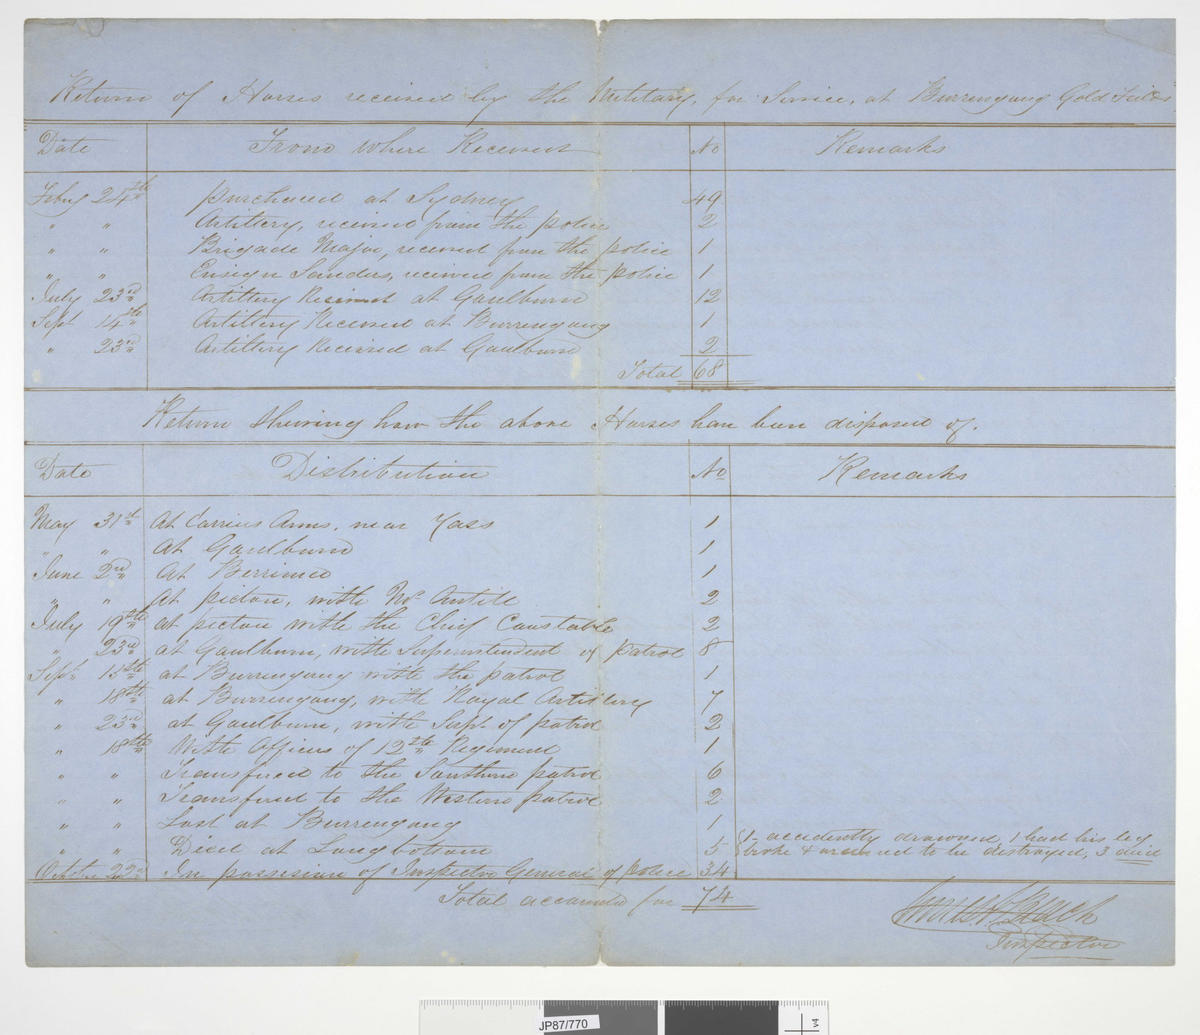 Return of Horses received by the Military, for Service, at Burrengong Gold Fields
Date From Where Received No Remarks
Feby 24th purchased at Sydney 49
" " Artillery, received from the police 2
" " Brigade Major, received from the police 1
" " Ensign Sanders, received from the police 1
July 23rd Artillery Received at Gaulburn 12
Sept 14th Artillery Received at Burrengong 1
" 23rd Artillery Received at Gaulburn 2
Total 68
Return shewing how the above Horses have been disposed of.
Date Distribution No Remarks
May 31st At Carrius Arms, near Yass 1
" " At Gaulburn 1
June 2nd At Berrima 1
" " At picton, with Mr Antill 2
July 19th at picton with the Chief Constable 2
" 23rd at Gaulburn, with Superintendent of patrol 8
Sept 15th at Burrengong with the patrol 1
" 18th at Burrengong, with Royal Artillery 7
" 23rd at Gaulburn, with Supt of patrol 2
" 18th With Officers of 12th Regiment 1
" " Transfered to the Southern patrol 6
" " Transfered to the Western patrol 2
" " Lost at Burrengong 1
" " Died at Longbottom 5 1 accidently drowned, 1 had his leg
broke & ordered to be destroyed, 3 died
October 22nd In possession of Inspector General of police 34
Total accounted for 74
Black
Inspector
JP87/770
V4